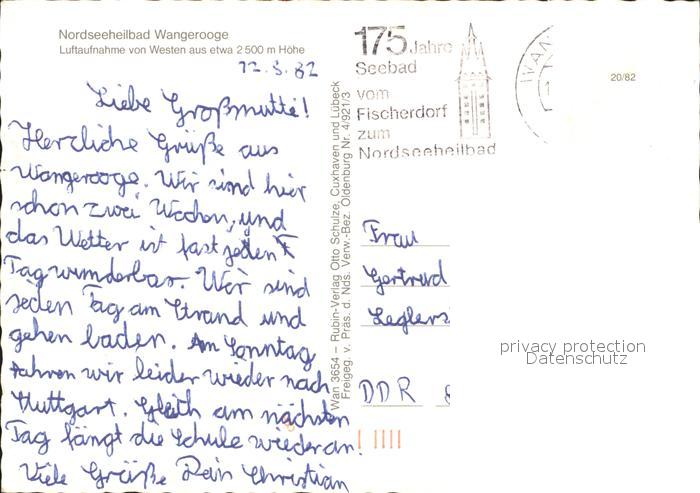 Nordseeheilbad Wangerooge
Luftaufnahme von Westen aus etwa 2 500 m Höhe
12.8.82
Liebe Großmutti!
Herzliche Grüße aus
Wangerooge. Wir sind hier
schon zwei Wochen, und
das Wetter ist fast jeden
Tag wunderbar. Wir sind
jeden Tag am Strand und
gehen baden. Am Sonntag
fahren wir leider wieder nach
Stuttgart. Gleich am nächsten
Tag fängt die Schule wieder an!
Viele Grüße Dein Christian
Wan 3654 – Rubin-Verlag Otto Schulze, Cuxhaven und Lübeck
Freigeg. v. Präs. d. Nds. Verw.-Bez. Oldenburg Nr. 4/921/3
175 Jahre
Seebad
vom
Fischerdorf
zum
Nordseeheilbad
20/82
Frau
Gertrud
DDR
privacy protection
Datenschutz